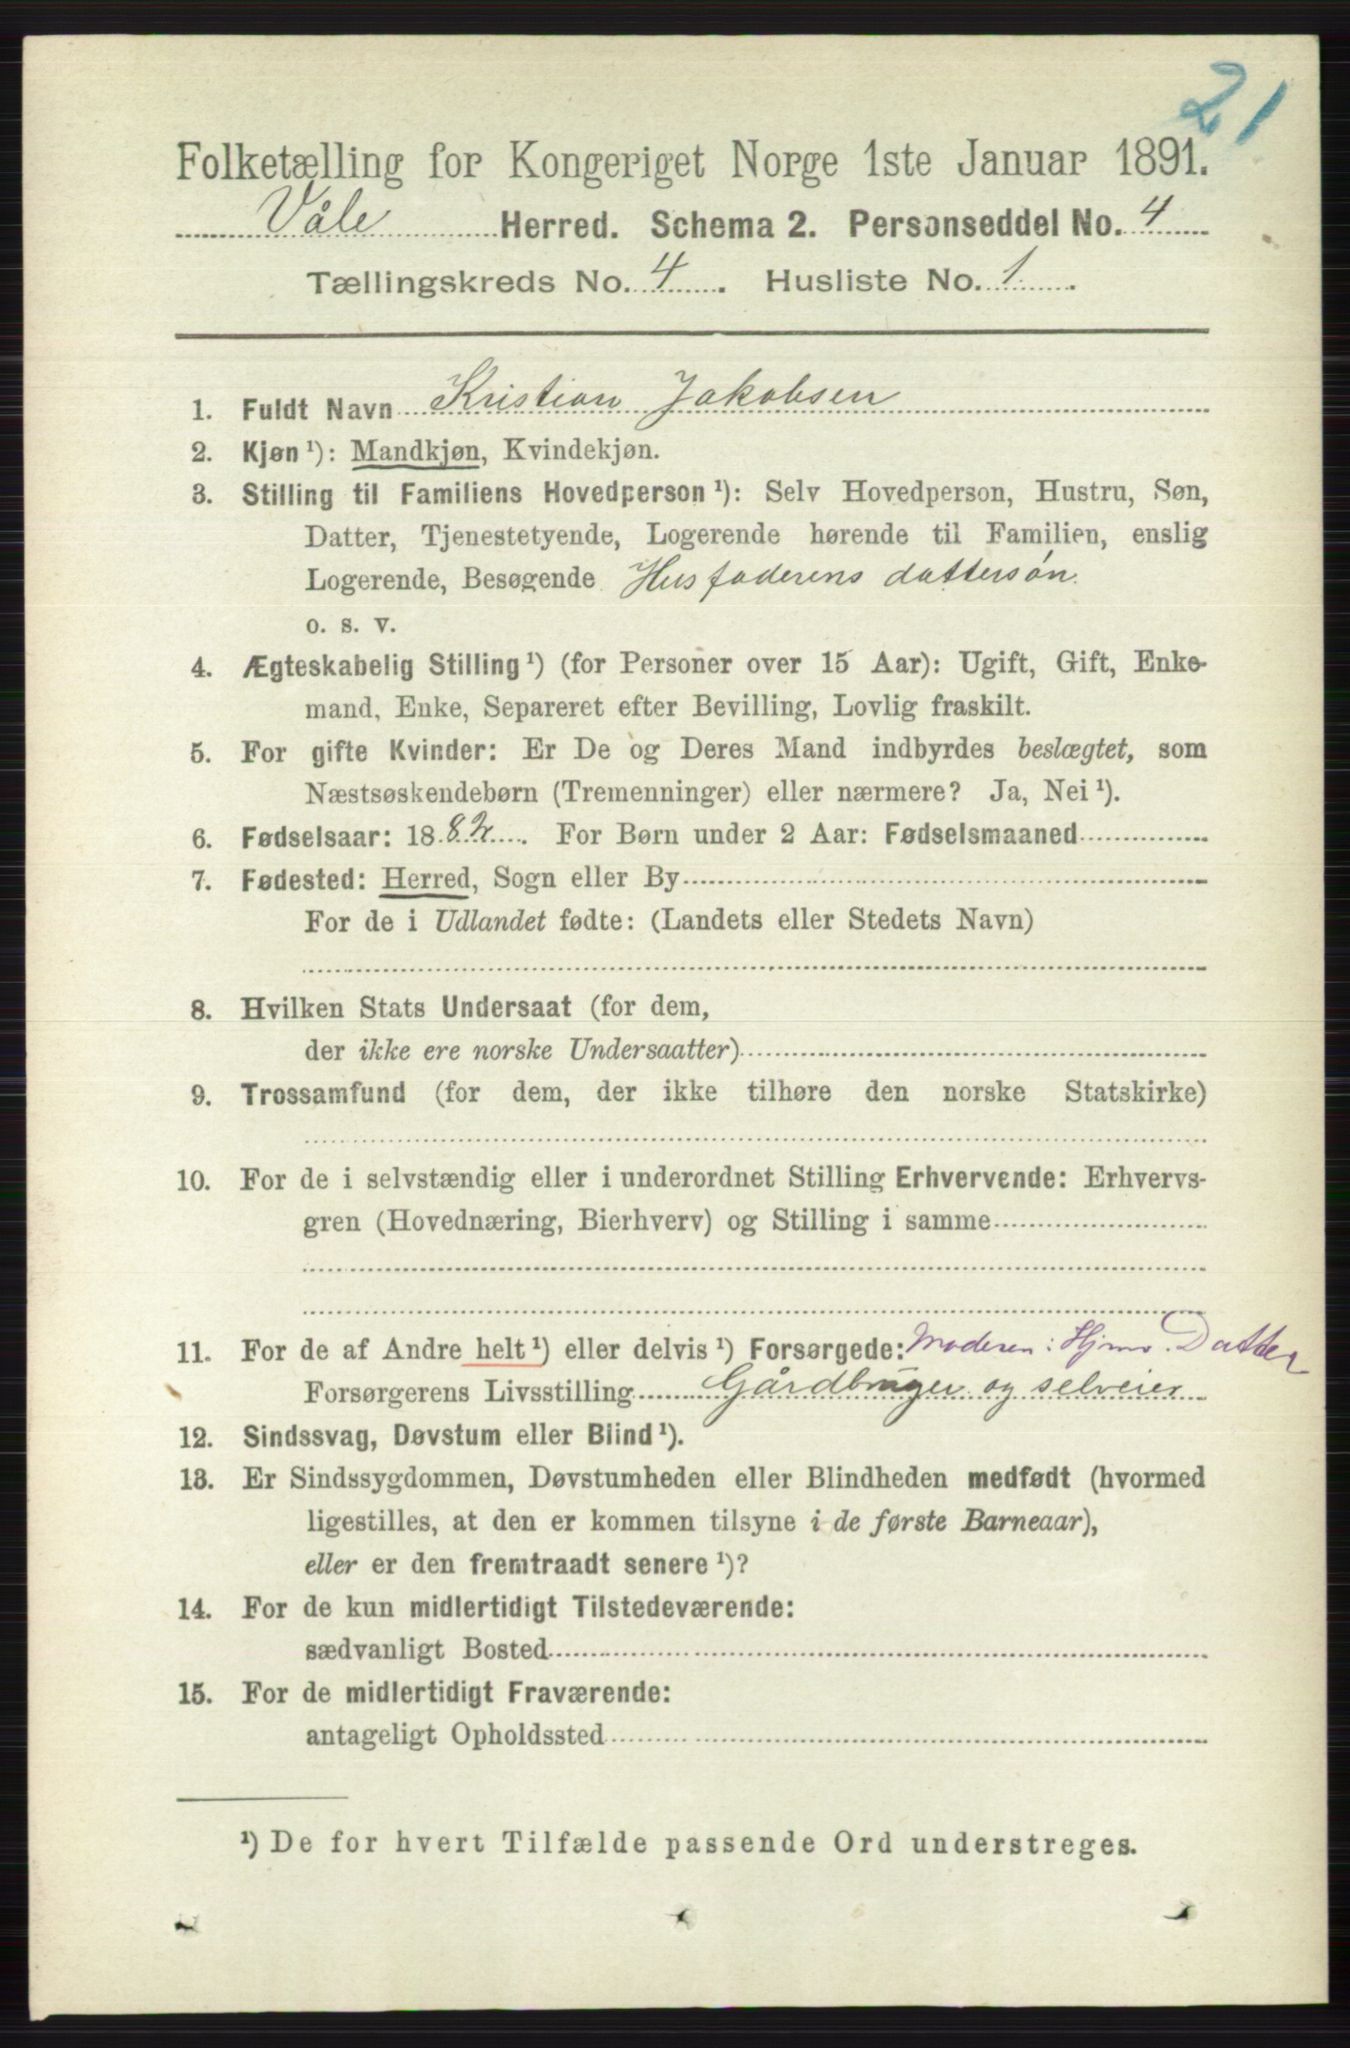 21
Folketælling for Kongeriget Norge 1ste Januar 1891.
Våle Herred. Schema 2. Personseddel No. 4
Tællingskreds No. 4. Husliste No. 1.
1. Fuldt Navn Kristian Jakobsen
2. Kjøn¹): Mandkjøn, Kvindekjøn.
3. Stilling til Familiens Hovedperson¹): Selv Hovedperson, Hustru, Søn,
Datter, Tjenestetyende, Logerende hørende til Familien, enslig
Logerende, Besøgende Husfaderens dattersøn.
o. s. v.
4. Ægteskabelig Stilling¹) (for Personer over 15 Aar): Ugift, Gift, Enke-
mand, Enke, Separeret efter Bevilling, Lovlig fraskilt.
5. For gifte Kvinder: Er De og Deres Mand indbyrdes beslægtet, som
Næstsøskendebørn (Tremenninger) eller nærmere? Ja, Nei¹).
6. Fødselsaar: 1882. For Børn under 2 Aar: Fødselsmaaned
7. Fødested: Herred, Sogn eller By
For de i Udlandet fødte: (Landets eller Stedets Navn)
8. Hvilken Stats Undersaat (for dem,
der ikke ere norske Undersaatter)
9. Trossamfund (for dem, der ikke tilhøre den norske Statskirke)
10. For de i selvstændig eller i underordnet Stilling Erhvervende: Erhvervs-
gren (Hovednæring, Bierhverv) og Stilling i samme
11. For de af Andre helt¹) eller delvis¹) Forsørgede: Moderen: Hjmv. Datter
Forsørgerens Livsstilling Gårdbruger og selveier
12. Sindssvag, Døvstum eller Blind¹).
13. Er Sindssygdommen, Døvstumheden eller Blindheden medfødt (hvormed
ligestilles, at den er kommen tilsyne i de første Barneaar),
eller er den fremtraadt senere¹)?
14. For de kun midlertidigt Tilstedeværende:
sædvanligt Bosted
15. For de midlertidigt Fraværende:
antageligt Opholdssted
¹) De for hvert Tilfælde passende Ord understreges.